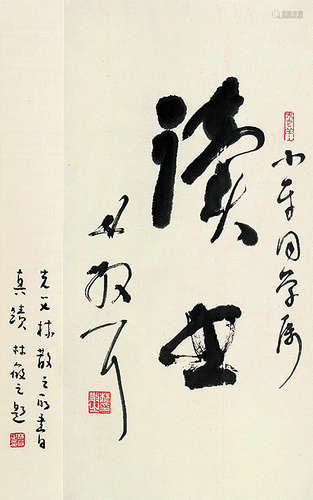 小平同学属
读书
林散耳
先父林散之所書
真蹟 林筱之题